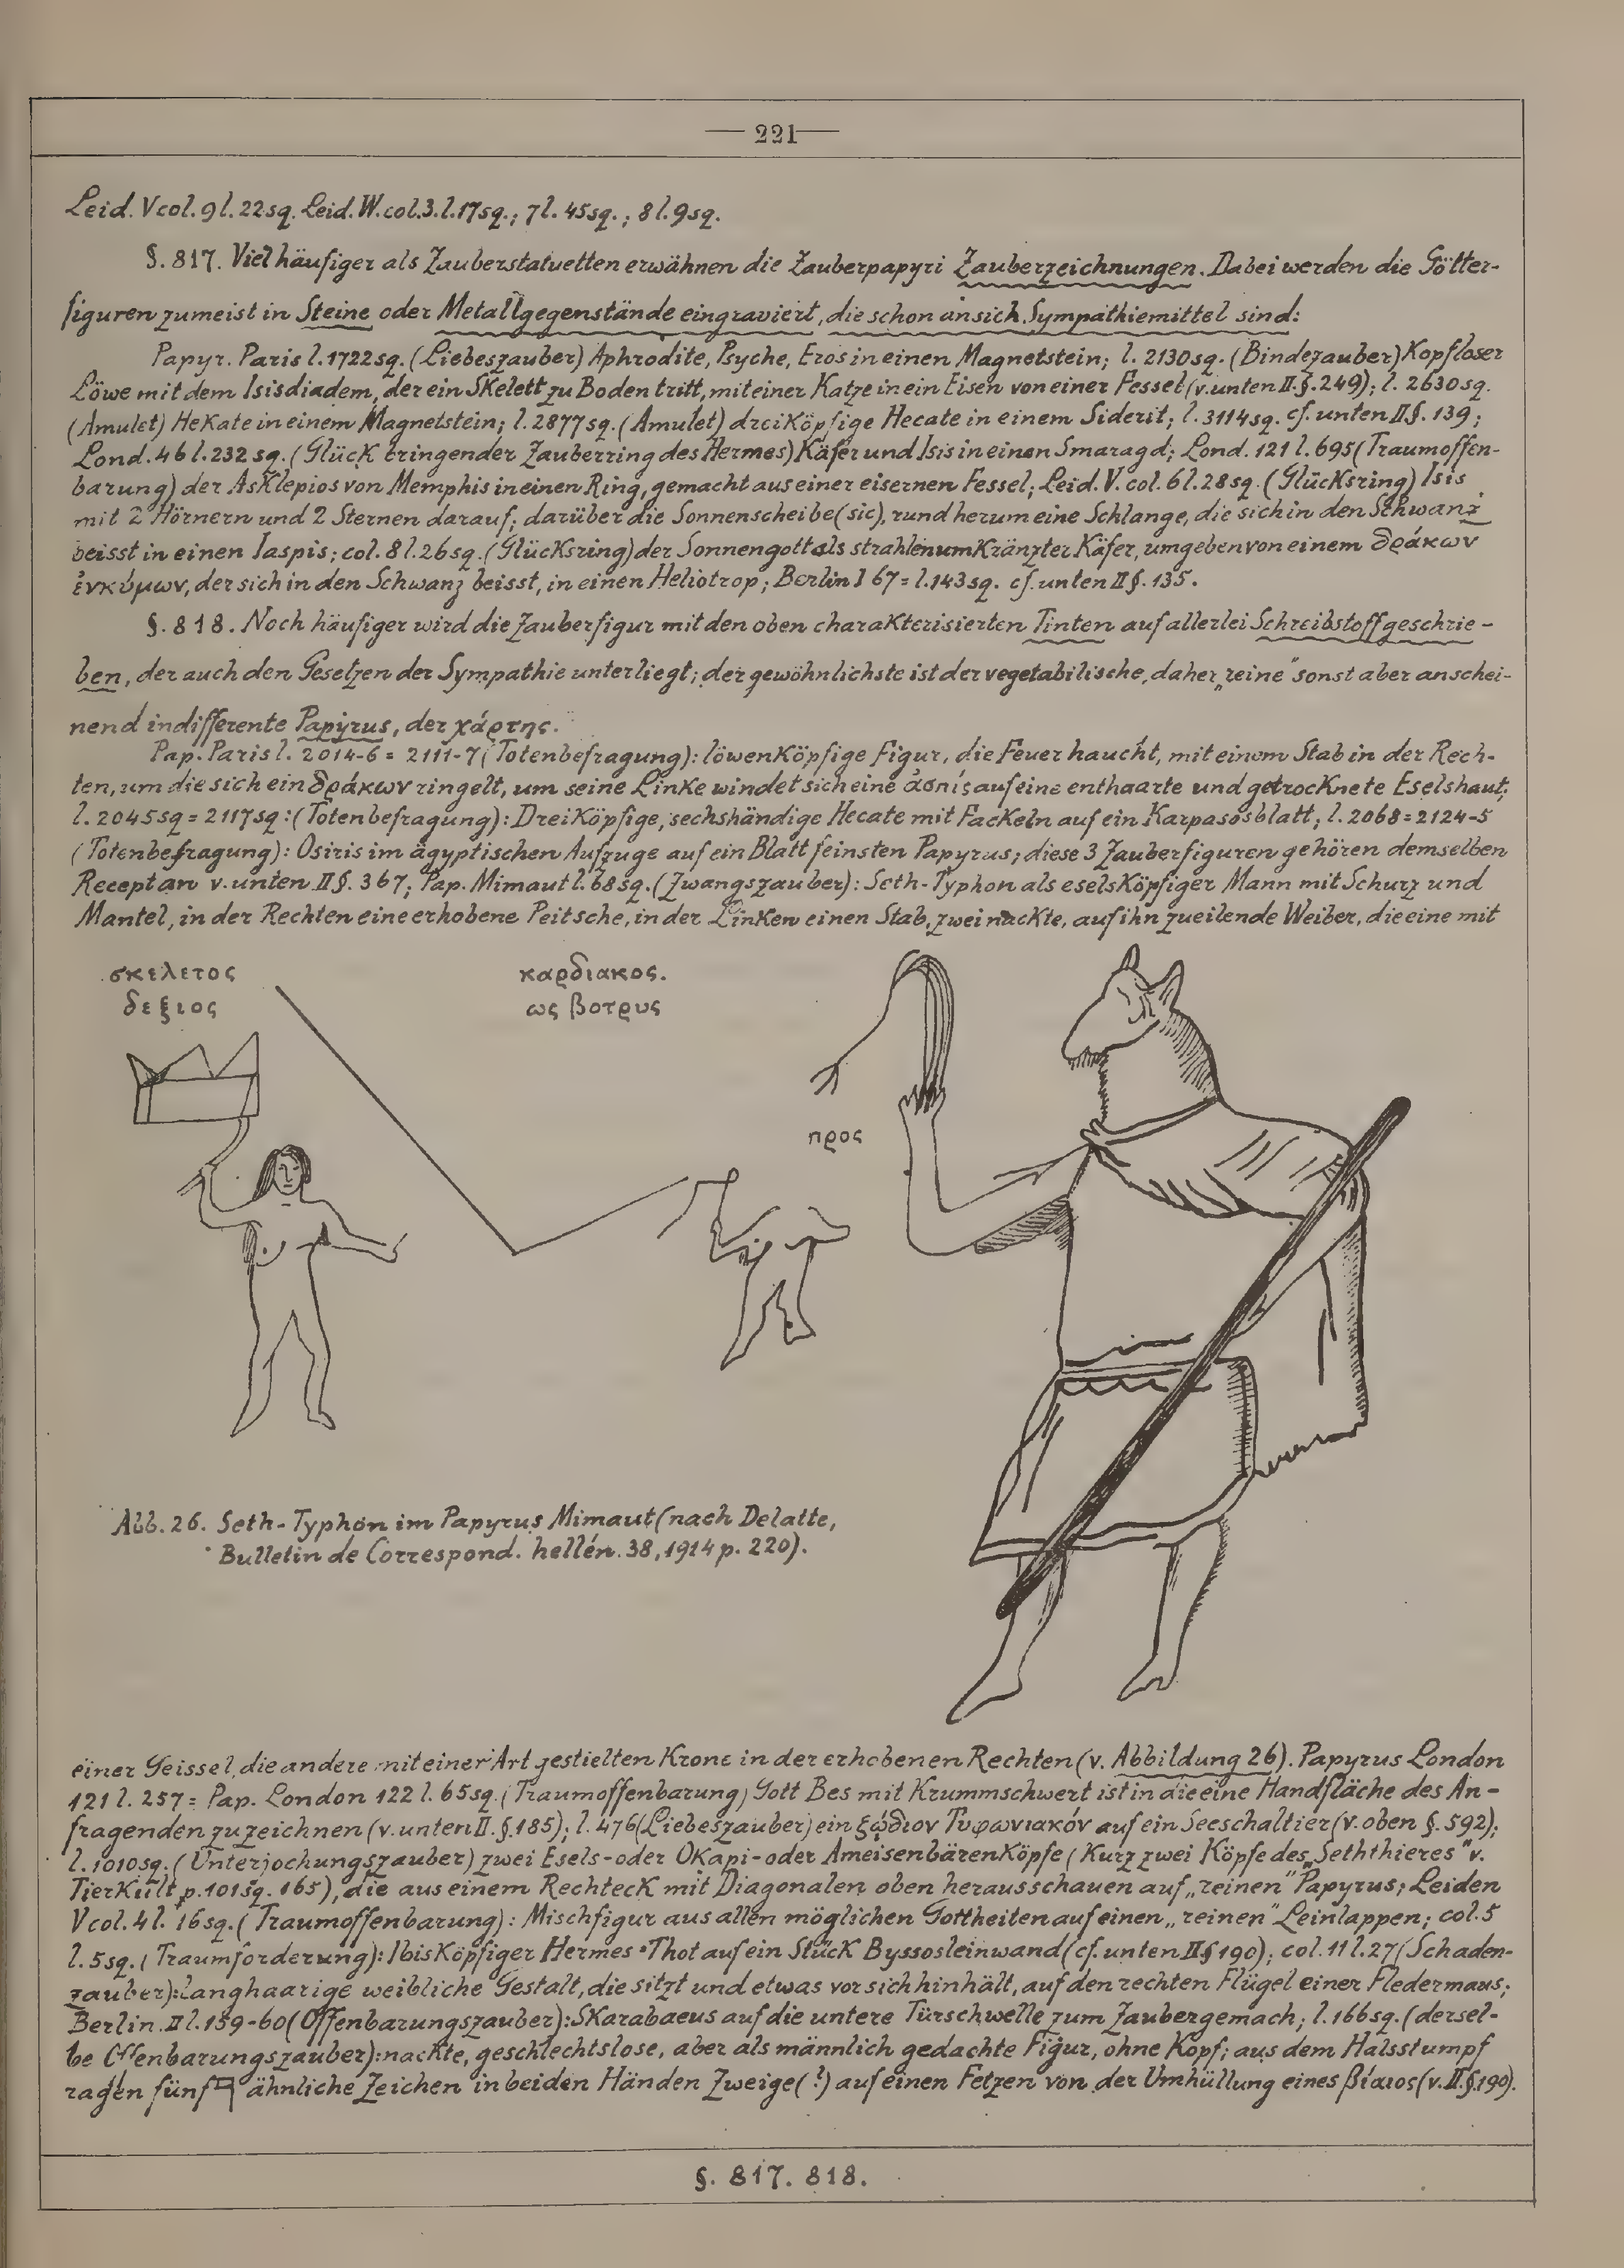 — 221 —
Leid. V col. 9 l. 22 sq. Leid. W. col. 3. l. 17 sq.; 7 l. 45 sq.; 8 l. 9 sq.
§. 817. Viel häufiger als Zauberstatuetten erwähnen die Zauberpapyri Zauberzeichnungen. Dabei werden die Götter-
figuren zumeist in Steine oder Metallgegenstände eingraviert, die schon an sich Sympathiemittel sind:
Papyr. Paris l. 1722 sq. (Liebeszauber) Aphrodite, Psyche, Eros in einen Magnetstein; l. 2130 sq. (Bindezauber) Kopfloser
Löwe mit dem Isisdiadem, der ein Skelett zu Boden tritt, mit einer Katze in ein Eisen von einer Fessel (v. unten II. §. 249); l. 2630 sq.
(Amulet) Hekate in einem Magnetstein; l. 2877 sq. (Amulet) dreiköpfige Hecate in einem Siderit; l. 3114 sq. cf. unten II §. 139;
Lond. 46 l. 232 sq. (Glück bringender Zauberring des Hermes) Käfer und Isis in einen Smaragd; Lond. 121 l. 695 (Traumoffen-
barung) der Asklepios von Memphis in einen Ring, gemacht aus einer eisernen Fessel; Leid. V. col. 6 l. 28 sq. (Glücksring) Isis
mit 2 Hörnern und 2 Sternen darauf; darüber die Sonnenscheibe (sic), rund herum eine Schlange, die sich in den Schwanz
beisst in einen Iaspis; col. 8 l. 26 sq. (Glücksring) der Sonnengott als strahlenumkränzter Käfer, umgeben von einem δράκων
ἐνκύμων, der sich in den Schwanz beisst, in einen Heliotrop; Berlin I 67 = l. 143 sq. cf. unten II §. 135.
§. 818. Noch häufiger wird die Zauberfigur mit den oben charakterisierten Tinten auf allerlei Schreibstoff geschrie-
ben, der auch den Gesetzen der Sympathie unterliegt; der gewöhnlichste ist der vegetabilische, daher „reine" sonst aber anschei-
nend indifferente Papyrus, der χάρτης.
Pap. Paris l. 2014-6 = 2111-7 (Totenbefragung): löwenköpfige Figur, die Feuer haucht, mit einem Stab in der Rech-
ten, um die sich ein δράκων ringelt, um seine Linke windet sich eine ἀσπίς auf eine enthaarte und getrocknete Eselshaut;
l. 2045 sq = 2117 sq: (Totenbefragung): Dreiköpfige, sechshändige Hecate mit Fackeln auf ein Karpasosblatt; l. 2068 = 2124-5
(Totenbefragung): Osiris im ägyptischen Aufzuge auf ein Blatt feinsten Papyrus; diese 3 Zauberfiguren gehören demselben
Recept an v. unten II §. 367; Pap. Mimaut l. 68 sq. (Zwangszauber): Seth-Typhon als eselsköpfiger Mann mit Schurz und
Mantel, in der Rechten eine erhobene Peitsche, in der Linken einen Stab, zwei nackte, auf ihn zueilende Weiber, die eine mit
σκελετος
δεξιος
καρδιακος.
ως βοτρυς
προς
Abb. 26. Seth-Typhon im Papyrus Mimaut (nach Delatte,
Bulletin de Correspond. hellén. 38, 1914 p. 220).
einer Geissel, die andere mit einer Art gestielten Krone in der erhobenen Rechten (v. Abbildung 26). Papyrus London
121 l. 257 = Pap. London 122 l. 65 sq. (Traumoffenbarung) Gott Bes mit Krummschwert ist in die eine Handfläche des An-
fragenden zu zeichnen (v. unten II. §. 185); l. 476 (Liebeszauber) ein ζῴδιον Τυφωνιακόν auf ein Seeschaltier (v. oben §. 592);
l. 1010 sq. (Unterjochungszauber) zwei Esels- oder Okapi- oder Ameisenbärenköpfe (kurz zwei Köpfe des „Seththieres" v.
Tierkult p. 101 sq. 165), die aus einem Rechteck mit Diagonalen oben herausschauen auf „reinen" Papyrus; Leiden
V col. 4 l. 16 sq. (Traumoffenbarung): Mischfigur aus allen möglichen Gottheiten auf einen „reinen" Leinlappen; col. 5
l. 5 sq. (Traumforderung): Ibisköpfiger Hermes-Thot auf ein Stück Byssosleinwand (cf. unten II § 190); col. 11 l. 27 (Schaden-
zauber): langhaarige weibliche Gestalt, die sitzt und etwas vor sich hinhält, auf den rechten Flügel einer Fledermaus;
Berlin. II l. 159-60 (Offenbarungszauber): Skarabaeus auf die untere Türschwelle zum Zaubergemach; l. 166 sq. (dersel-
be Offenbarungszauber): nackte, geschlechtslose, aber als männlich gedachte Figur, ohne Kopf; aus dem Halsstumpf
ragen fünf ähnliche Zeichen in beiden Händen Zweige (?) auf einen Fetzen von der Umhüllung eines βίαιος (v. II. §. 190).
§. 817. 818.